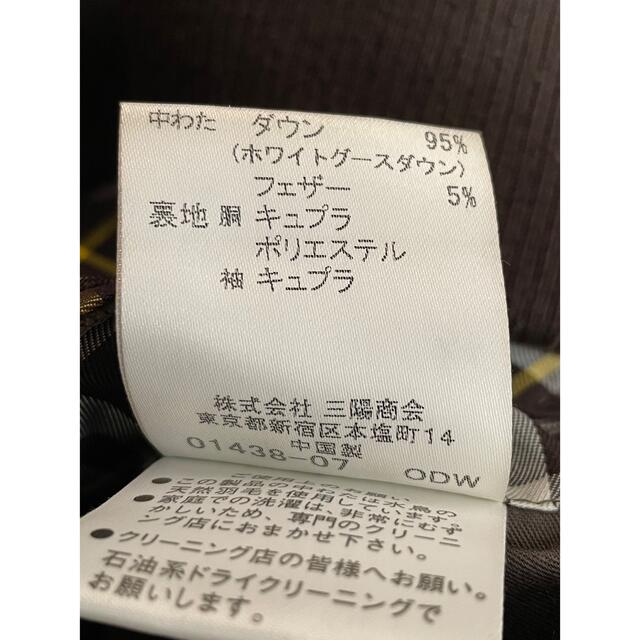 中わた ダウン 95%
(ホワイトグースダウン)
フェザー 5%
裏地 胴 キュプラ
ポリエステル
袖 キュプラ
株式会社 三陽商会
東京都新宿区本塩町14
中国製
01438-07 ODW
ご使用上のお願い
●この製品の中わたは水鳥の
天然羽毛を使用しています。
●家庭での洗濯は、非常にむず
かしいため、専門のクリーニ
ング店におまかせ下さい。
●クリーニング店の皆様へお願い。
石油系ドライクリーニングで
お願いします。